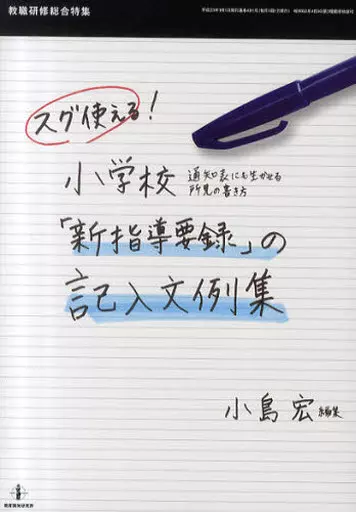 教職研修総合特集
スグ使える!
小学校 通知表にも生かせる
所見の書き方
「新指導要録」の
記入文例集
小島 宏 編集
教育開発研究所